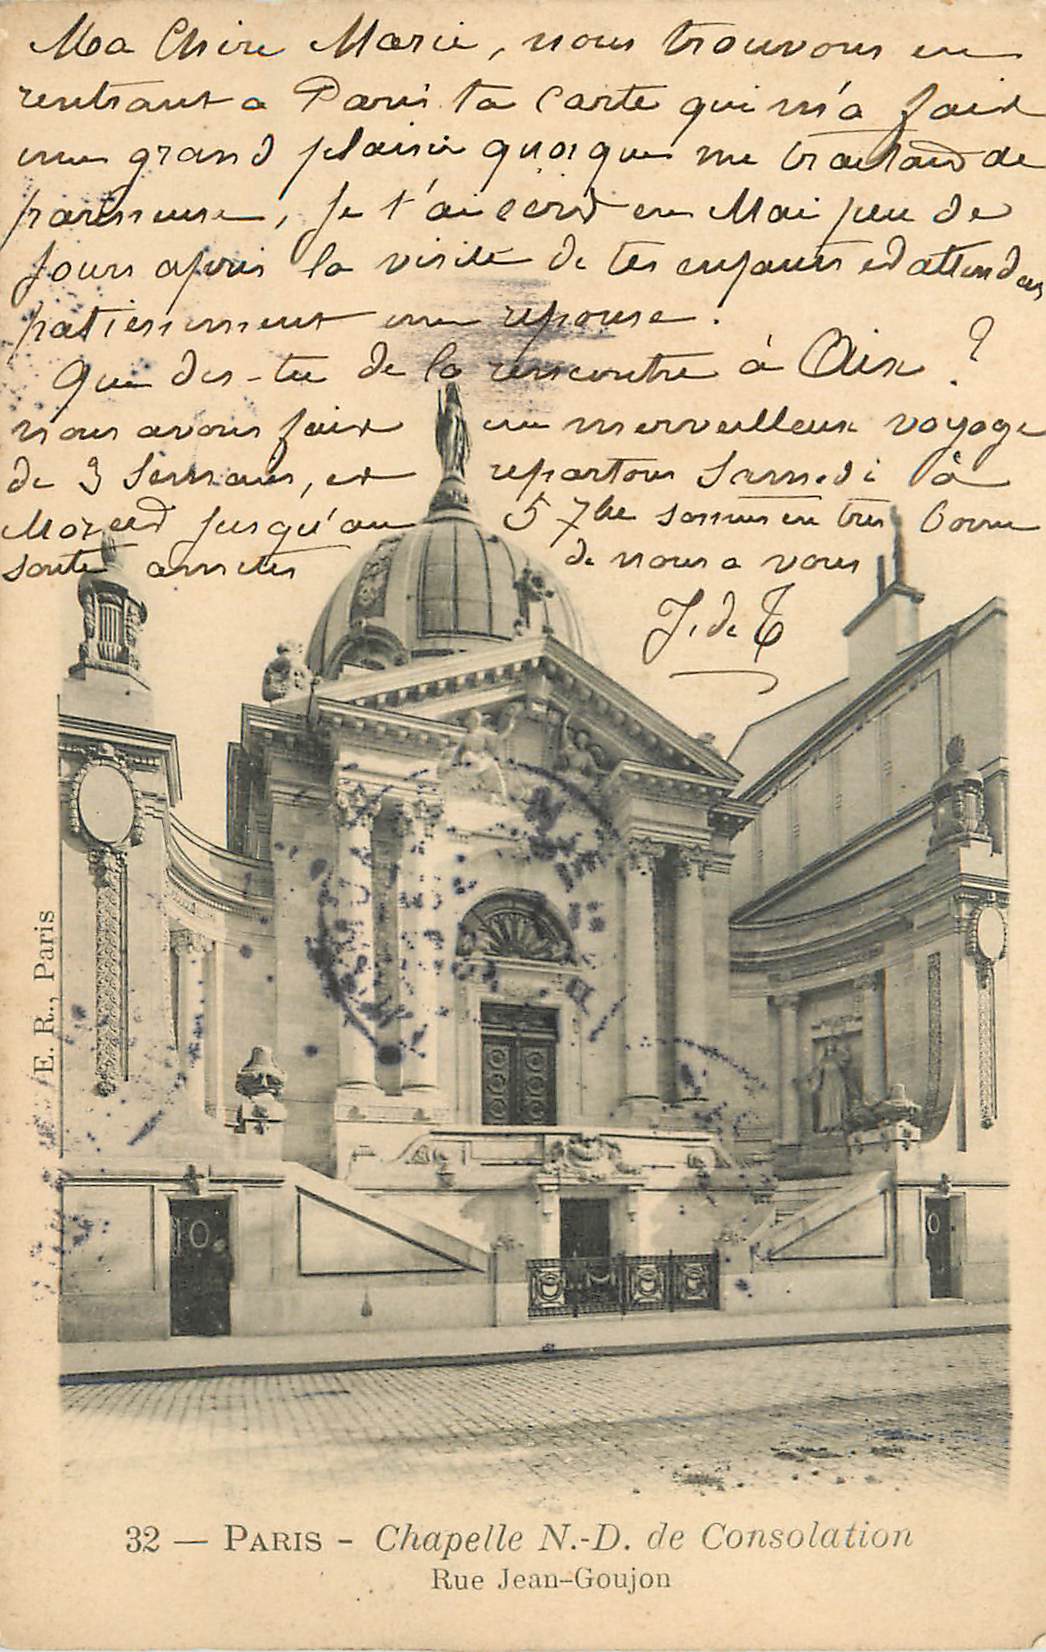 Ma Chère Marie, nous trouvons en
rentrant a Paris ta Carte qui m'a fait
un grand plaisir quoique me traitand de
paresseuse, Je t'ai ecrid en Mai peu de
Jours apres la visite de tes enfants ed attendais
patiemment une reponse.
Que dis-tu de la rencontre à Aix ?
nous avons fait un merveilleux voyage
de 3 Semaines, et repartons Samedi à
jusqu'au 5 7bre sommes en tres bonne
santé amities de nous a vous
J. de T
E. R., Paris
32 — PARIS - Chapelle N.-D. de Consolation
Rue Jean-Goujon